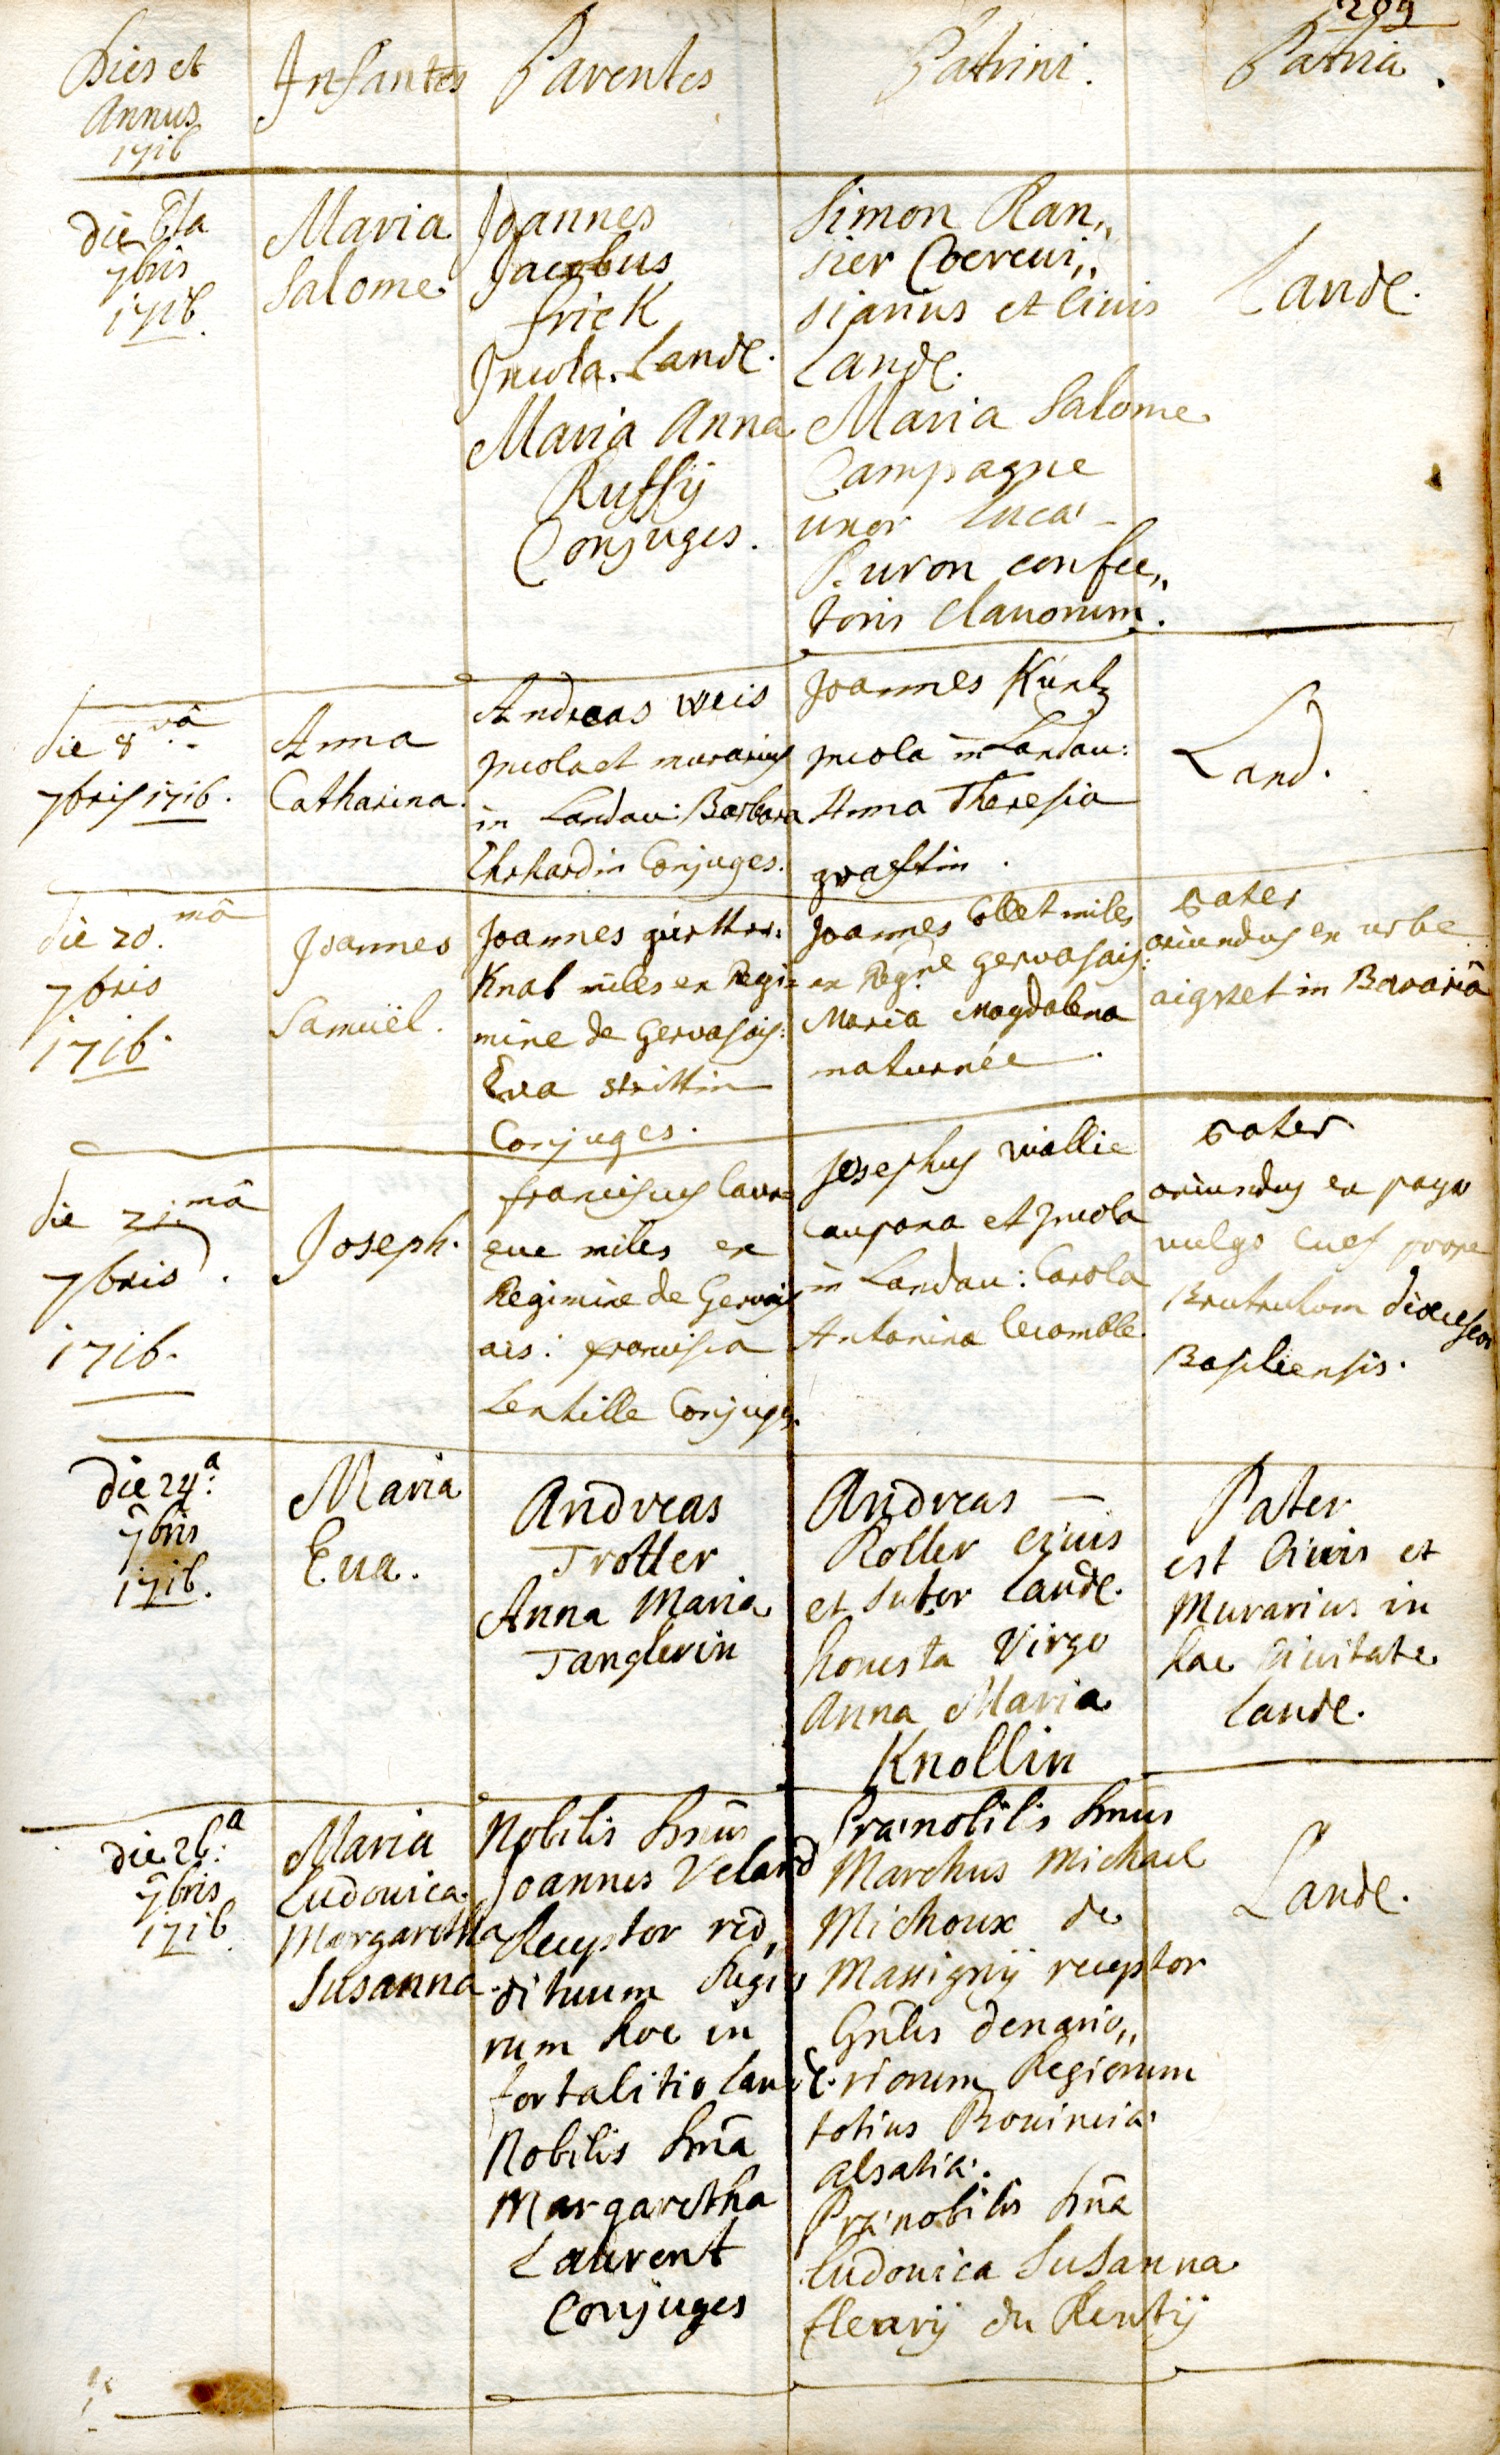 209
Dies et
Annus
1716
Infantes
Parentes
Patrini.
Patria.
die 6ta
7bris
1716.
Maria
Salome
Joannes
Jacobus
frick
Incola Landę.
Maria Anna
Ruffij
Conjuges.
Simon Ran„
sier Cerevi„
siarius et Civis
Landę.
Maria Salome
Campagne
uxor Lucæ
Buron confec„
toris Clavorum.
Landę.
die 8vâ
7bris 1716.
Anna
Catharina.
Andreas weis
Incola et murarius
in Landau: Barbara
Ehrhardin Conjuges.
Joannes Küntz
Incola in Landau:
Anna Theresia
graffin.
Land.
die 20.mâ
7bris
1716.
Joannes
Samuël.
Joannes
Knab miles ex Regi=
mine de Gervasais:
Eva strittin
Conjuges.
Joannes Collet miles
ex Regne gervasais:
Maria Magdalena
maturnée.
Pater
oriundus ex urbe
in Bavariâ
die 21.mâ
7bris.
1716.
Joseph.
franciscus
miles ex
Regimine de Gervais
ais: francisca
Lentille Conjuges.
Josephus viallie
caupona et Incola
in Landau: Carola
Antonina lecomble.
Pater
oriundus ex pago
vulgo
dioceseos
Basileensis.
die 24a:
7bris
1716.
Maria
Eva.
Andreas
Trotter
Anna Maria
Tanglerin
Andreas —
Koller civis
et Sutor Landę.
honesta Virgo
Anna Maria
Knollin
Pater
est Civis et
Murarius in
hac Civitate
Landę.
die 26:a
7bris
1716
Maria
Ludovica
Margaretha
Susanna.
Nobilis Dnus
Joannes Veland
Receptor red„
dituum Regio
rum hoc in
fortalitio Landę.
Nobilis Dna
Margaretha
Laurent
Conjuges
Prænobilis Dnus
Marchus Michael
Michoux de
Massignij receptor
Gnlis denario„
riorum Regiorum
totius Provinciæ
Alsatiæ.
Prænobilis Dna
Ludovica Susanna
fleurij du Rentij
Landę.